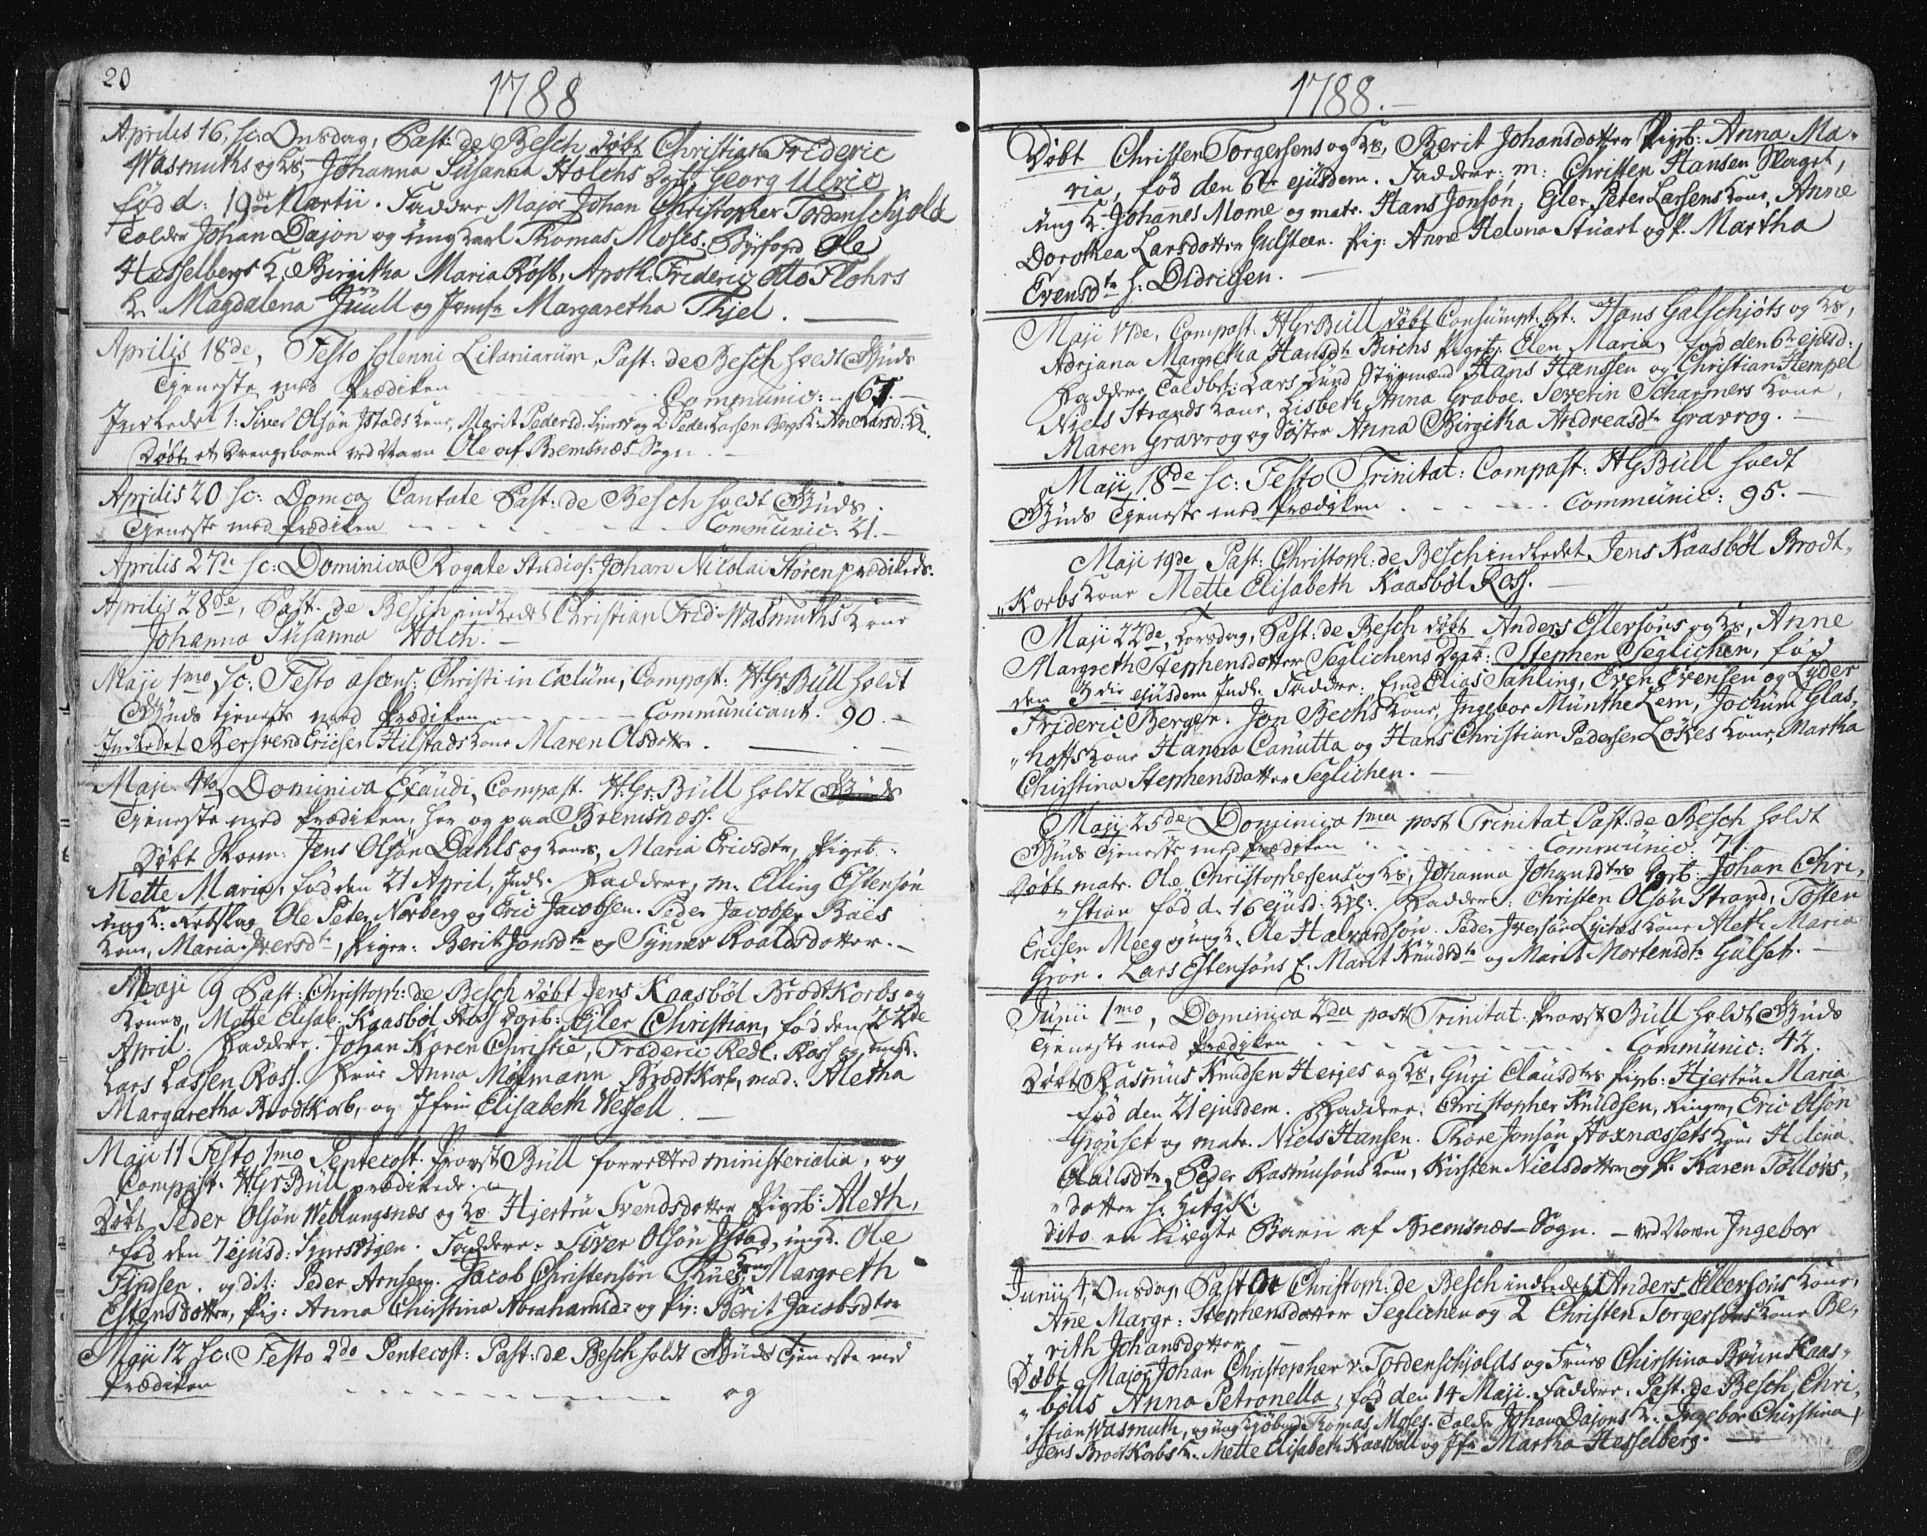 20
1788
Aprilis 16, sc: Onsdag, Past: de Besch døbt Christian Frideric
Wasmuths og Ks, Johanna Susanna Holchs Georg Ulric
født d: 19de Martii. Faddere Major Johan Christopher Tordenschjold
Tolder Johan Dajon og ung Karl Thomas Moses. Byefogd Ole
Hesselbergs K. Birgitha Maria Røst, Apoth. Frideric Otto Flohrs
K. Magdalena Juull og Jomfr Margaretha Thjel.
Aprilis 18de, Festo solenni Litaniarum, Past: de Besch holdt Guds
Tjeneste med Prædiken Communic: 67.
Indledet 1: Siver Olsøn Istads Kone, Marit Pedersd. og 2 Peder Larsen Bergs K: Larsd:
Døbt et Drengebarn ved Navn Ole af Bremsnæs Sogn.
Aprilis 20 sc: Domca Cantate Past: de Besch holdt Guds
Tjeneste med Prædiken Communic: 21.
Aprilis 27de sc: Dominica Rogate Studios: Johan Nicolai Støren prædikede.
Aprilis 28de, Past. de Besch indledet Christian Frid. Wasmuths Kone
Johanna Susanna Holch.
Maji 1mo sc: Festo ascens: Christi in Cælum, Compast: H Gr Bull holdt
Guds tjeneste med Prædiken Communicant. 90.
Indledet Bersvend Ericsen Hilstads Kone Maren Olsdotter.
Maji 4to, Dominica Exaudi, Compast. H: Gr: Bull holdt Guds
Tjeneste med Prædiken, her og paa Bremsnæss.
Døbt Jens Olsøn Dahls og Kones, Maria Ericsdtr, Pigeb:
Mette Maria, fød den 21 April, Indl. Faddere, m. Elling Estensøn
ung K: Ole Peter Norberg og Eric Jacobsen. Peder Jacobsen Bøes
Kone, Maria Iversdtr, Piger: Berit Jonsdtr og Synnev Roaldsdotter.
Maji 9 Past: Christoph: de Besch døbt Jens Kaasbøl BrodtKorbs og
Kones, Mette Elisab: Kaasbøl Ross Dgeb: Ejler Christian, fød den 22de
April. Faddere. Johan Koren Christie, Frideric Redl. Ross og ungk.
Lars Lassen Ross. Frue Anna Mosmann BrodtKorb, mad: Aletha
Margaretha BrodtKorb, og Jfru Elisabeth Wessell.
Maji 11 Festo 1mo Pentecost. Provst Bull forrettede ministerialia, og
Compast. H: Gr: Bull prædikede.
Døbt Peder Olsøn Weblungsnæs og Ks Hjertru Svendsdotter Pigeb: Aleth,
fød den 7 ejusd: Faddere: Siver Olsøn Istad, ungd. Ole
Gundsen. og dit: Peder Arnsen. Jacob Christensøn Kone, Margreth
Estensdotter, Pig: Anna Christina Abrahamsdr og Pig: Berit Jacobsdter
Maji 12 sc: Festo 2do Pentecost: Past: de Besch holdt Guds Tjeneste med
Prædiken og
1788.
Døbt Christen Torgersens og Ks, Berit Johansdotter Pigeb: Anna Ma-
ria, fød den 6te ejusdem. Faddere: m: Christen Hansen
ung K. Johanes Mome og matr. Hans Jonsøn, Ejler Peter Larsens Kone, Anne
Dorothea Larsdotter Gulsteen. Pig: Anne Helena Stuart og P. Martha
Evensdtr h: Didrichsen.
Maji 17de, Compast: H Gr Bull døbt Consumpt. Hans Galschjøts og Ks,
Adrjana Margretha Hansdtr Birchs Pigeb: Elen Maria, fød den 6te ejusd:
Faddere Toldbet: Lars Lund Styrmænd Hans Hanssen og Christian Hempel
Niels Strands Kone, Lisbeth Anna Graboe. Severin Schavners Kone,
Maren Gravrog og Søster Anna Birgitha Andreasdtr Gravrog.
Maji 18de sc: Festo Trinitat: Compast: H G Bull holdt
Guds Tjeneste med Prædiken Communic: 95.
Maji 19de Past: Christoph: de Besch indledet Jens Kaasbøl Brodt-
Korbs Kone Mette Elisabeth Kaasbøl Ross.
Maji 22de, Torsdag, Past: de Besch døbt Anders Ellersøns og Ks, Anne
Margreth Stephensdotter Seglichens Dgeb: Stephen Seglichen, fød
den 3die ejusdem Indl. Faddere: Elias Sahling, Even Evensen og Lyder
Frideric Berger. Jon Bechs Kone, Ingebor Münthe Lem, Jochum Glas-
hoffs Kone Hanna Canutta og Hans Christian Pedersen Løkes Kone, Martha
Christina Stephensdotter Seglichen.
Maji 25de Dominica 1ma post Trinitat Past. de Besch holdt
Guds Tjeneste med Prædiken Communic: 71.
Døbt matr. Ole Christophersens og Ks, Johanna Johansdters Dgeb: Johan Chri-
stian fød d. 16 ejusd: Faddere: Christen Olsøn Strand, Tosten
Ericsen Meeg og ungk. Ole Halvorsøn. Peder Iversøn Kone Aleth Maria
Grøn. Lars Estensøns E. Marit Knudsdtr og Marit Mortensdtr Gulset.
Junii 1mo, Dominica 2da post Trinitat. Provst Bull holdt Guds
Tjeneste med Prædiken Communic: 42.
Døbt Rasmus Knudsen Herjes og Ks, Guri Clausdtrs Pigeb: Hjertru Maria
fød den 21 ejusdem. Faddere: Christopher Knudsen, Ringer, Eric Olsøn
Grønset og matr. Niels Hansen. Thore Jonsøn Hoxnæssets Kone Helena
Olailsdtr, Peder Rasmusøns Kone, Kirsten Nielsdotter og P. Karen Tollovs-
dotter
dito en Ægte Barn af Bremsnæs-Sogn. ved Navn Ingebor
Junii 4, Onsdag, Past Christoph: de Besch indledet Anders Ellersøns Kone,
Ane Margr: Stephensdotter Seglichen og 2 Christen Torgersøns Kone Be-
rith Johansdotter
Døbt Major Johan Christopher v: Tordenschjolds og Frues Christina Bruun Kaas-
bølls Anna Petronella, fød den 14 Maji. Faddere, Past. de Besch, Chri-
stian Wasmuth, og ung Kjøbmd: Thomas Moses. Tolder Johan Dajons K. Ingebor Christina
Jens BrodtKorbs K. Mette Elisabeth Kaasbøll og Jfr Martha Hesselberg.